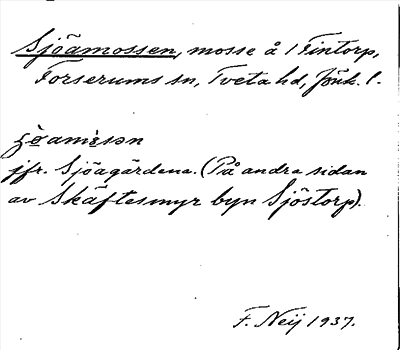 Sjöamossen, mosse å 1 Fintorp,
Forserums sn, Tveta hd, Jönk. l.
jfr. Sjöagärdena. (På andra sidan
av Skäftesmyr byn Sjöstorp).
F. Neij 1937.